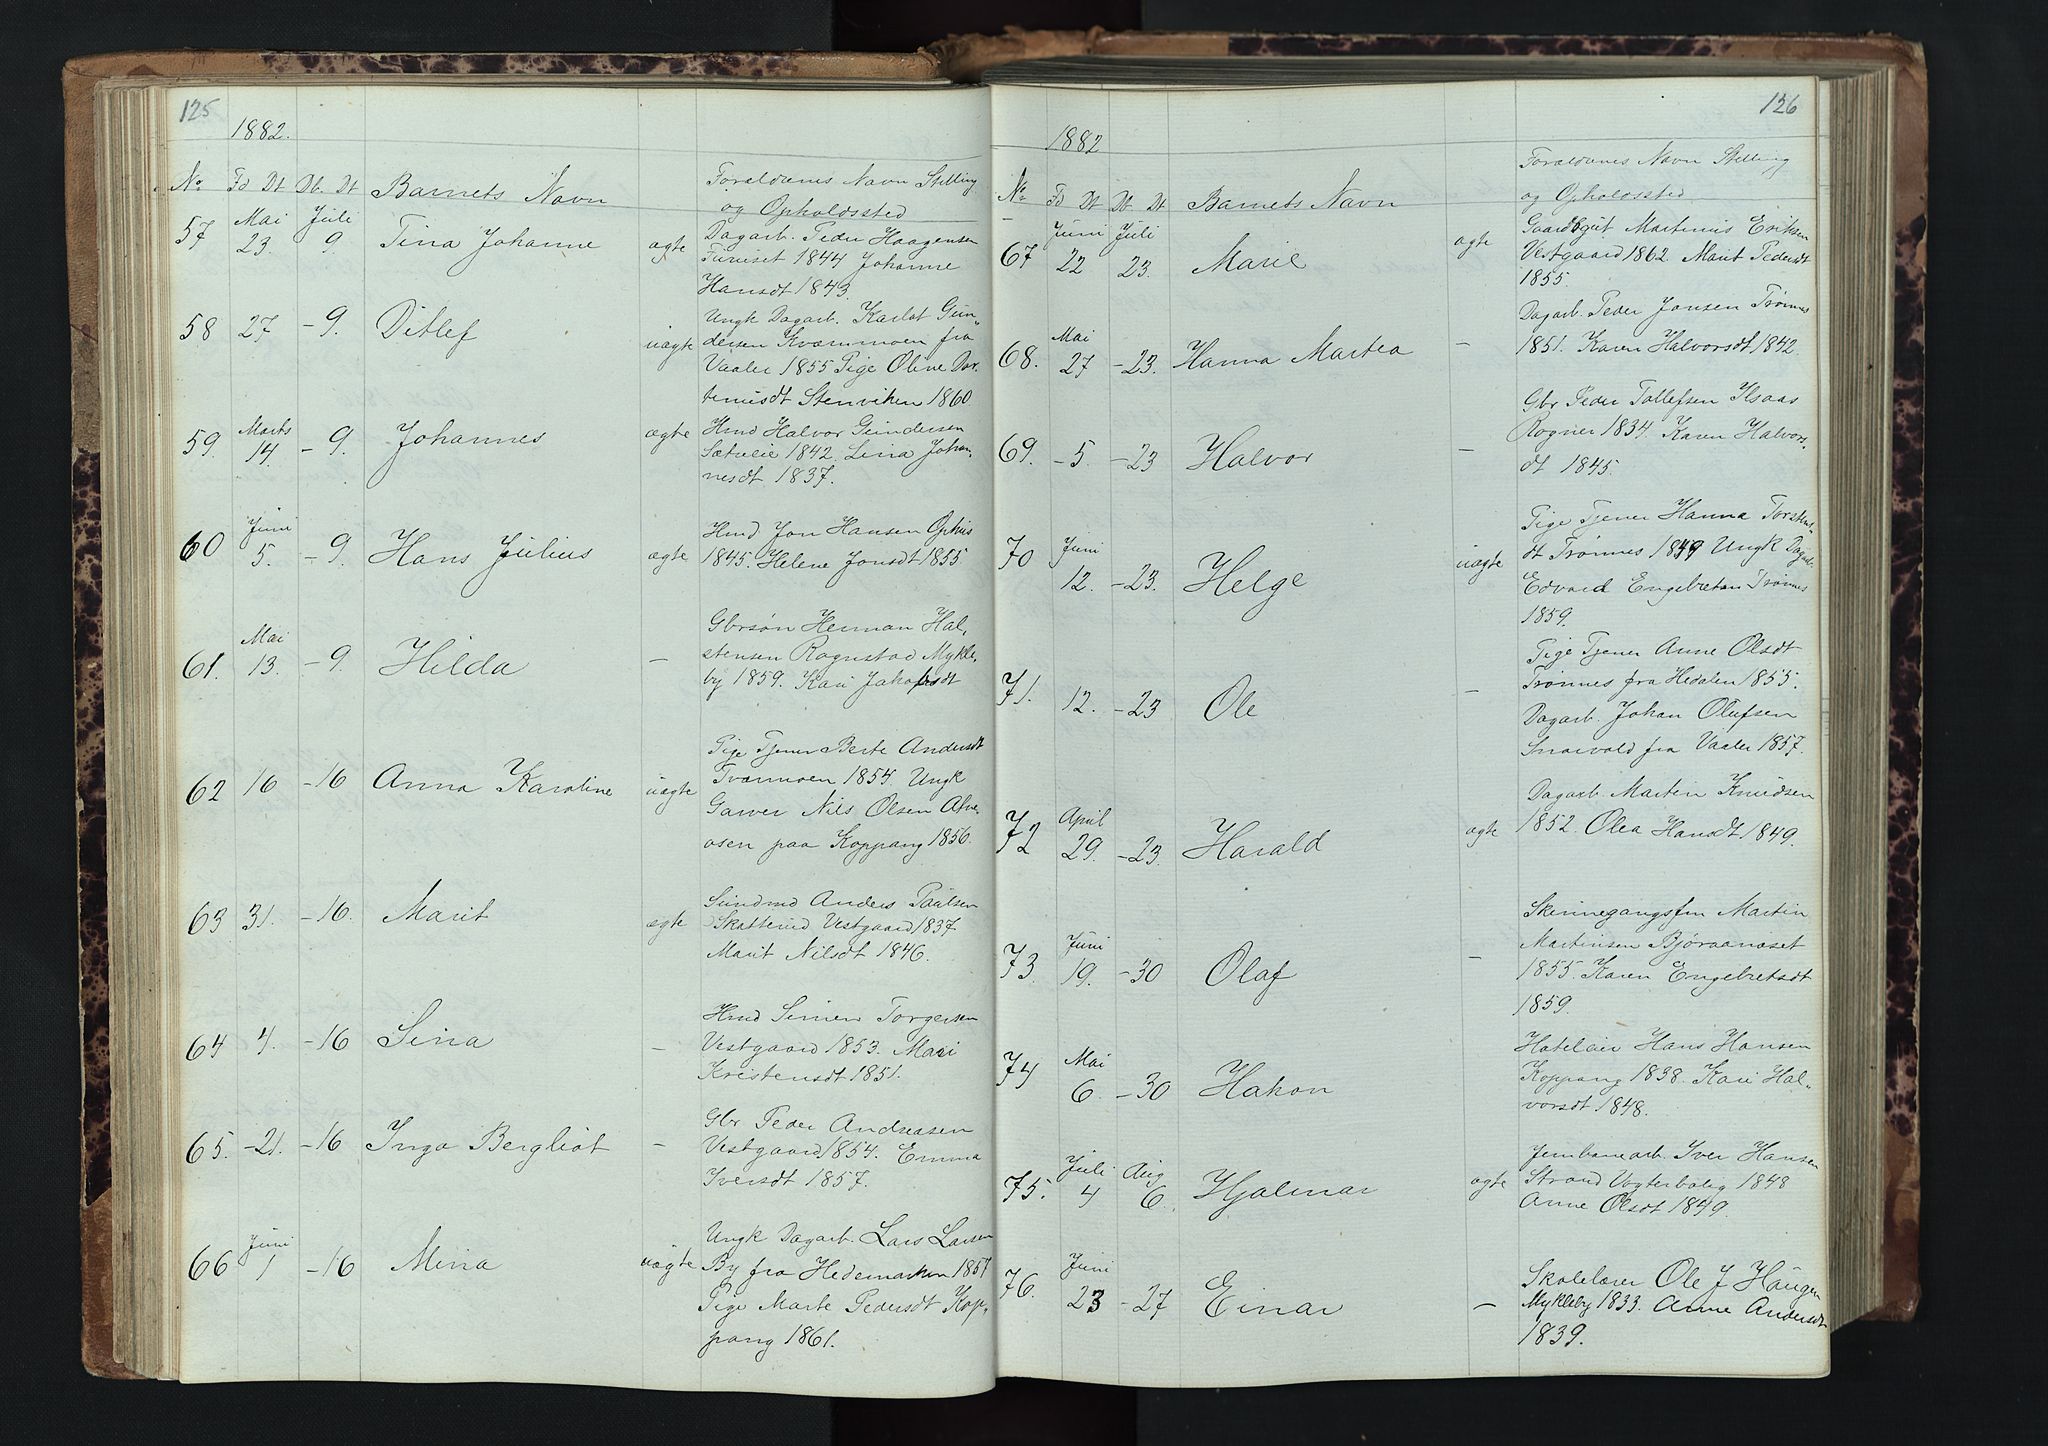 125
1882.
No Fd Dt Db. Dt Barnets Navn Forældrenes Navn Stilling
og Opholdssted
57 Mai 23. Juli 9 Tina Johanne ægte Dagarb. Peder Haagensen
Furuset 1844 Johanne
Hansdt 1843.
58 27 - 9. Ditlef uægte Ungk Dagarb. Karlot Gun-
dersen Kvæmmoen fra
Vaaler 1855 Pige Oline Mor-
tinusdt Stenviken 1860
59. Marts 14. - 9. Johannes ægte Hmd Halvor Gundersen
Sætreeie 1842. Lina Johan-
nesdt 1837.
60 Juni 5. - 9. Hans Julius ægte Hmd Jon Hansen Ophus
1845. Helene Jonsdt 1855
61. Mai 13. - 9. Hilda - Gbrsøn Herman Hal-
stensen Rognstad Mykle-
by 1859. Kari Jakobsdt
62 16 - 16 Anna Karoline uægte Pige Tjener Berte Andersdt
Tværmoen 1854. Ungk
Garver Nils Olsen Atne-
osen paa Koppang 1856.
63 31. - 16. Marit ægte Smdmd Anders Paulsen
Skatterud Vestgaard 1837
Marit Nilsdt 1846.
64 4. - 16 Sina - Hmd Simen Torgersen
Vestgaard 1853. Mari
Kristensdt 1851.
65. - 21. - 16 Inga Bergliot - Gbr Peder Andreasen
Vestgaard 1854. Emma
Iversdt 1857.
66 Juni 1 - 16 Mina uægte Ungk Dagarb. Lars Larsen
By fra Hedemarken 1857
Pige Marte Pedersdt Kop-
pang 1861.
126
1882
No Fd Dt Db. Dt Barnets Navn Forældrenes Navn Stilling
og Opholdssted
67 Juni 22 Juli 23. Marie ægte Gaardbgut Martinus Eriksen
Vestgaard 1862 Marit Pedersdt
1855.
68. Mai 27 - 23. Hanna Martea - Dagarb. Peder Jonsen Trønnes
1851. Karen Halvorsdt 1842.
69. - 5. - 23 Halvor - Gbr Peder Tollefsen Ilsaas
Rogner 1834. Karen Halvors-
dt 1845.
70 Juni 12. - 23. Helge uægte Pige Tjener Hanna Torstens-
dt Trønnes 1849 Ungk Dagarb.
Edvard Engebretsen Trønnes
1859.
71. 12. - 23 Ole - Pige Tjener Anne Olsdt
Trønnes fra Hedalen 1855.
Dagarb. Johan Olufsen
Snarvold fra Vaaler 1857.
72 April 29. - 23. Harald ægte Dagarb. Martin Knudsen
1852. Olea Hansdt 1849.
73. Juni 19. - 30 Olaf - Skinnegangsfm Martin
Martinsen Bjøraanæset
1855. Karen Engebretsdt
1859.
74 Mai 6. - 30 Hakon - Hoteleier Hans Hansen
Koppang 1838. Kari Hal-
vorsdt 1848.
75. Juli 4 Aug 6. Hjalmar ægte Jernbanearb. Iver Hansen
Strand Vogterbolig 1848
Anne Olsdt 1849.
76. Juni 23 - 27 Einar - Skolelærer Ole J Haugen
Mykleby 1833. Anne Andersdt
1839.